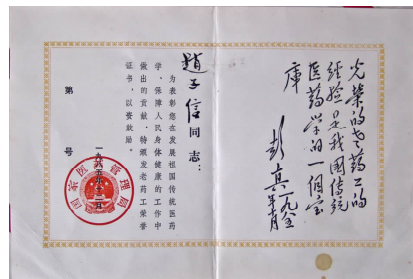 光榮的老药工的
经验是我國传統
医药学的一個宝
庫
彭真
一九八五
年十月
趙子信同志：
为表彰您在发展祖国传统医药
学，保障人民身体健康的工作中
做出的贡献，特颁发老药工荣誉
证书，以资鼓励。
第
号
一九八五年十二月
国家医药管理局